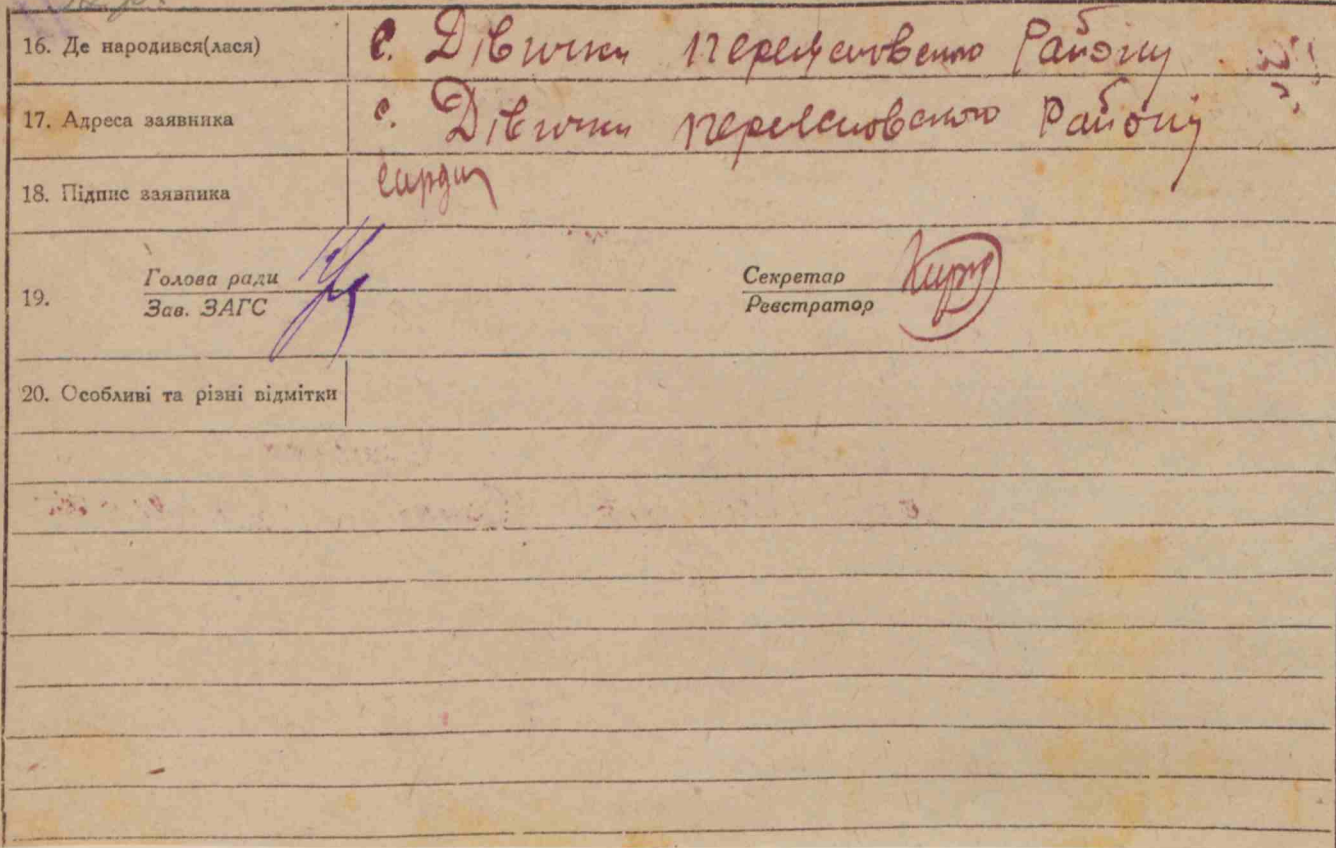 16. Де народився(лася) с. Дівички Переяславського Району
17. Адреса заявника с. Дівички Переяславського Району
18. Підпис заявника
19. Голова ради Секретар
Зав. ЗАГС Реєстратор
20. Особливі та різні відмітки